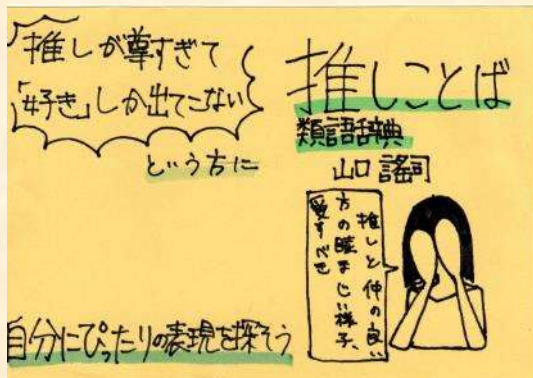 推しが尊すぎて
「好き」しか出てこない
という方に
推しことば
類語辞典
山口謠司
推しと仲の良い
方の睦まじい様子、
愛すべき
自分にぴったりの表現を探そう